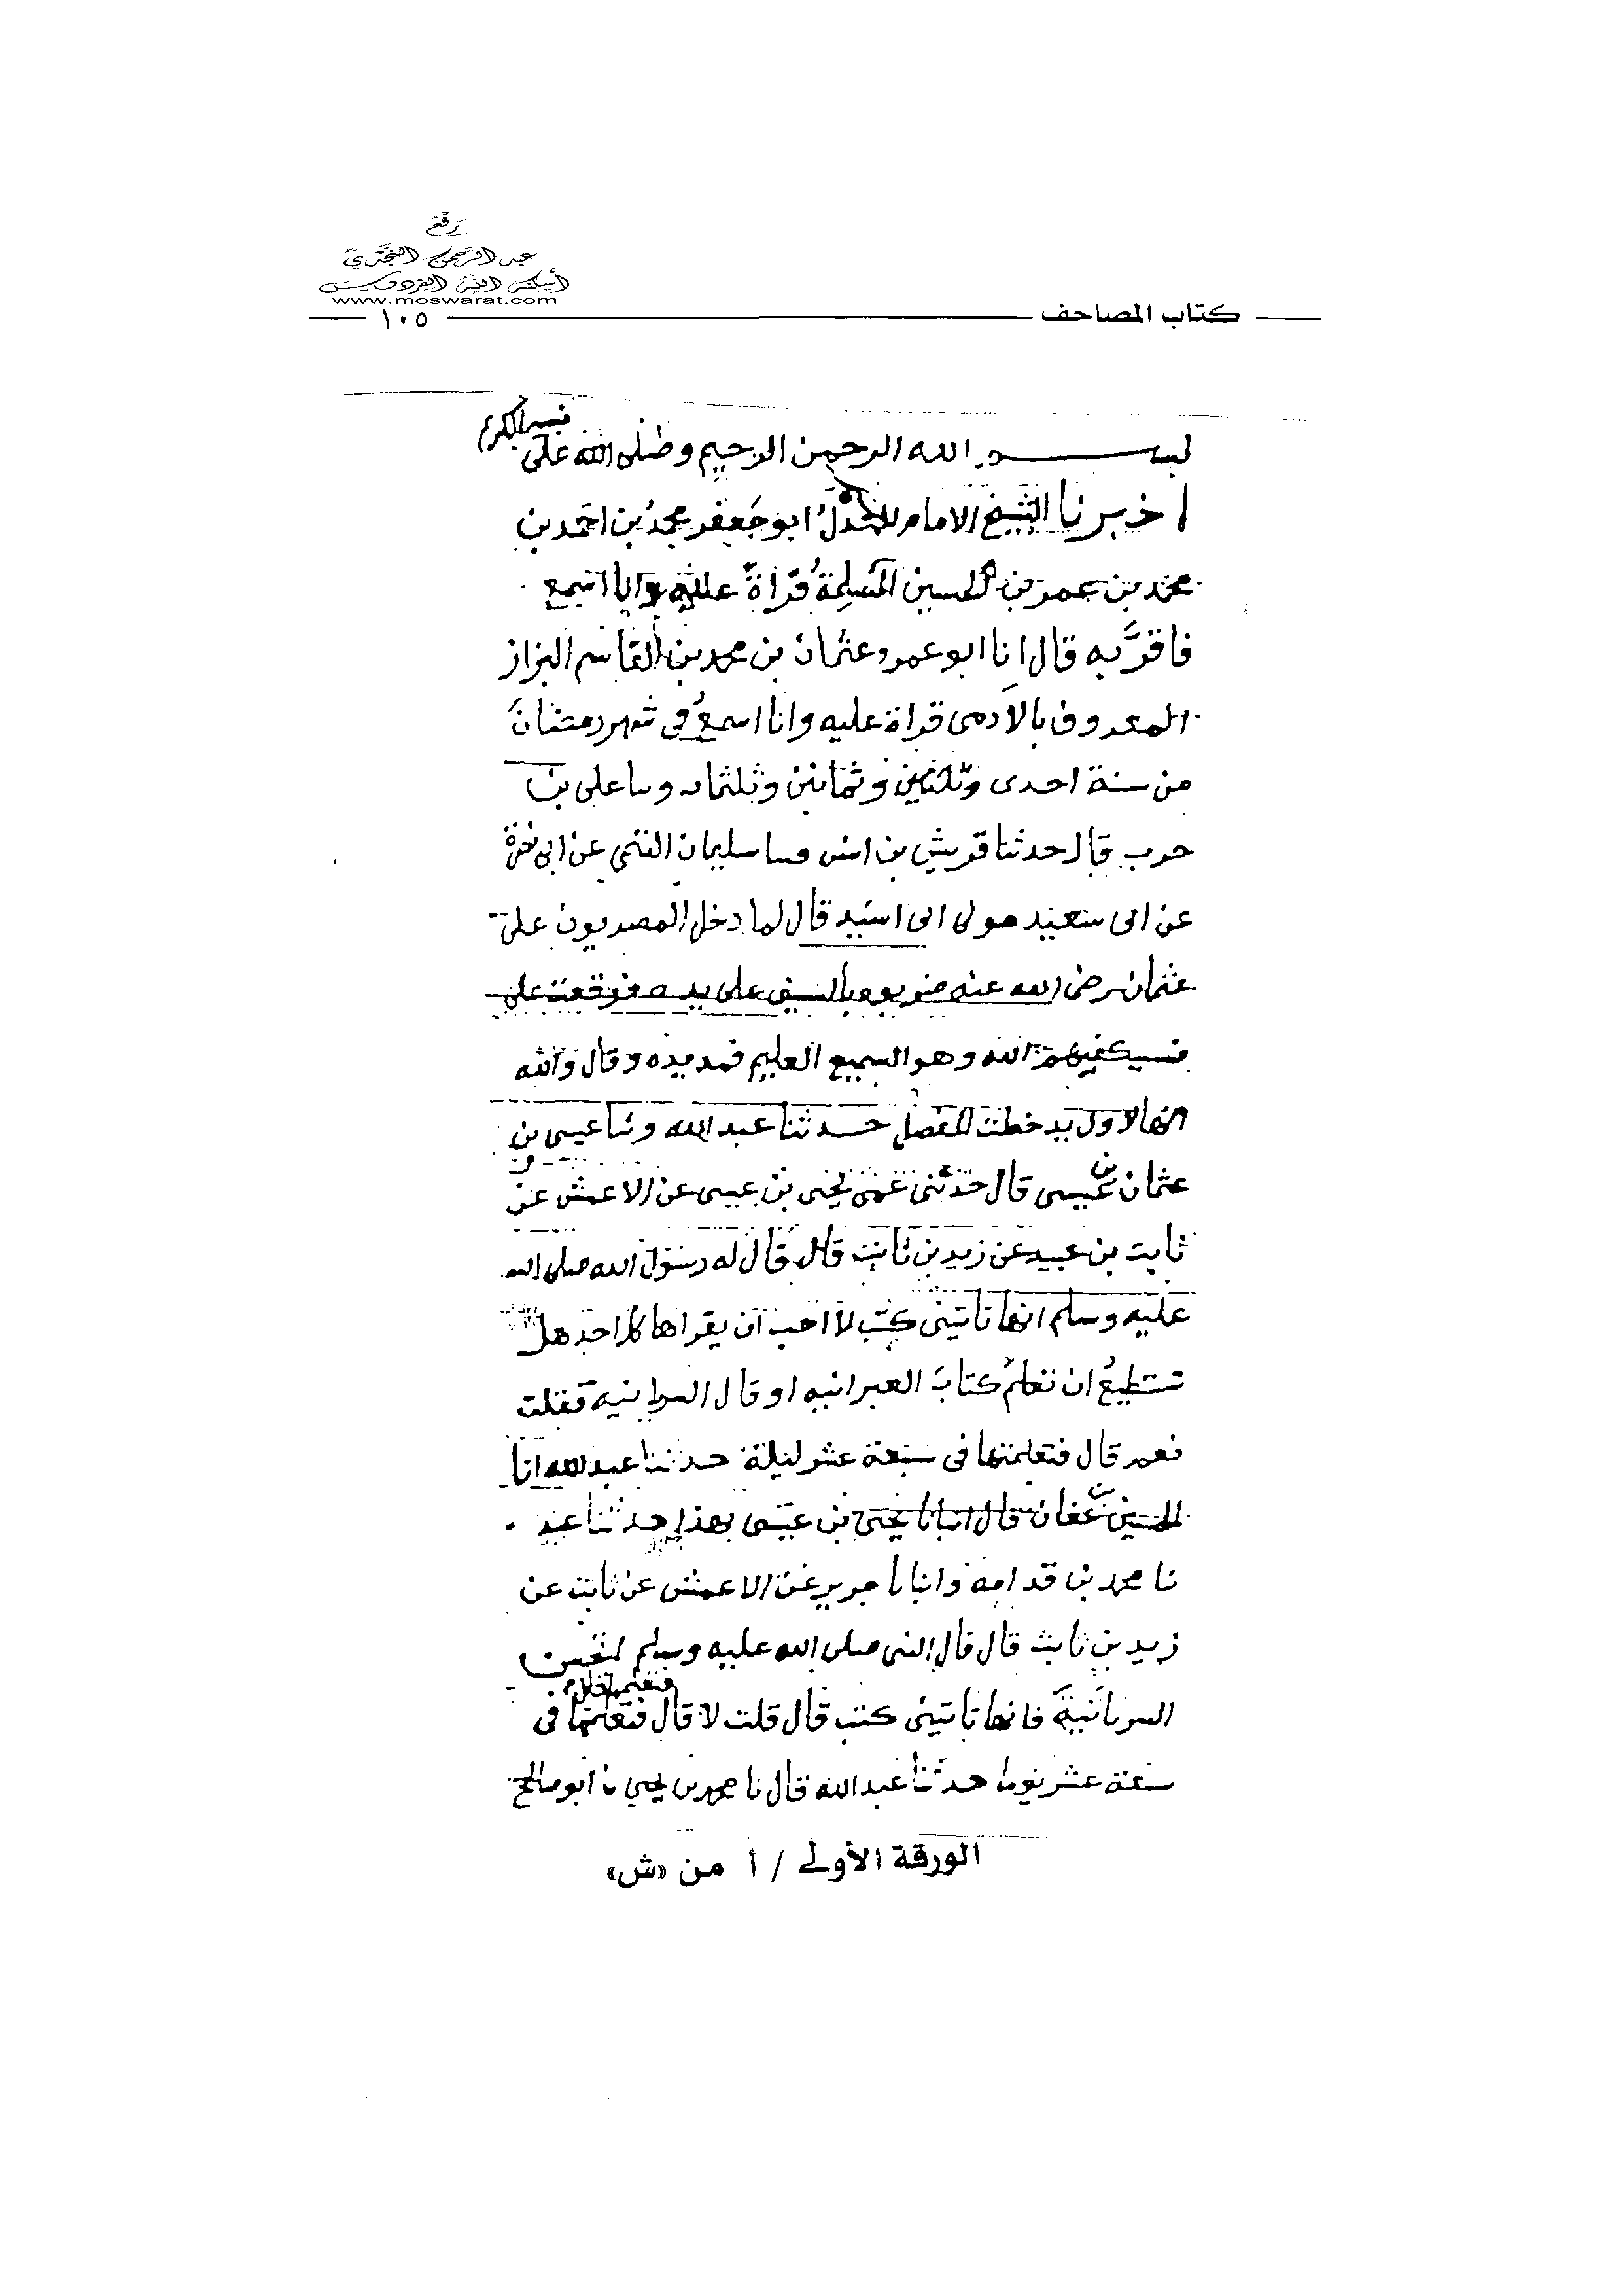 رفع
عبد الرحمن النجدي
أسكنه الله الفردوس
www.moswarat.com
كتاب المصاحف ١٠٥
بسم الله الرحمن الرحيم وصلى الله على
اخبرنا الشيخ الامام العدل ابو جعفر محمد بن احمد بن
محمد بن عمر بن الحسين المسلمة قراة عليه وانا اسمع
فاقر به قال انا ابو عمرو عثمان بن محمد بن القاسم البزاز
المعروف بالادمى قراة عليه وانا اسمع فى شهر رمضان
من سنة احدى وثمانين وثلثمايه و ثنا على بن
حرب قال حدثنا قريش بن انس ثنا سليمان التيمى عن ابى نضرة
عن ابى سعيد مولى ابى اسيد قال لما دخل المصريون على
عثمان رضى الله عنه ضربوه بالسيف على يده فوقعت على
فسيكفيكهم الله وهو السميع العليم فمد يده وقال والله
انها لاول يد خطت المفصل حدثنا عبد الله وثنا عيسى بن
عثمان بن عيسى قال حدثنى عمى يحيى بن عيسى عن الاعمش عن
ثابت بن عبيد عن زيد بن ثابت قال قال له رسول الله صلى الله
عليه وسلم انها تاتينى كتب لا احب ان يقراها كل احد هل
تستطيع ان تعلم كتاب العبرانيه او قال السريانيه فقلت
نعم قال فتعلمتها فى سبعة عشر ليلة حدثنا عبد الله انا
الحسين بن عفان قال انبانا يحيى بن عيسى بهذا حدثنا عبد
نا محمد بن قدامة وانبانا جرير عن الاعمش عن ثابت عن
زيد بن ثابت قال قال النبى صلى الله عليه وسلم اتحسن
السريانية فانها تاتينى كتب قال قلت لا قال فتعلمها فى
سبعة عشر يوما حدثنا عبد الله قال نا محمد بن يحيى نا ابو صالح
الورقة الأولى / أ من «ش»